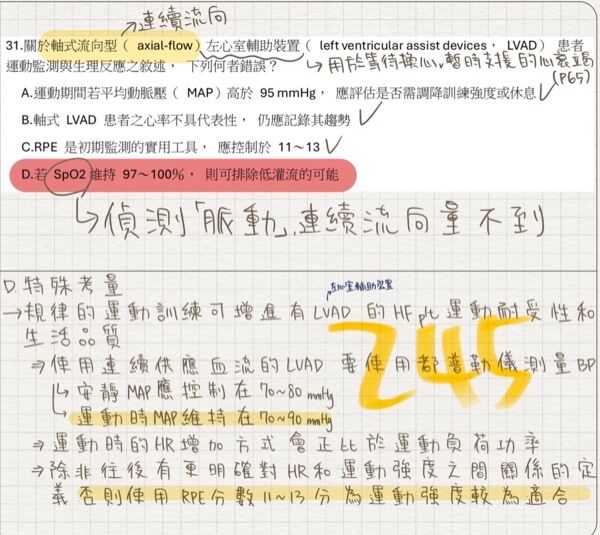 連續流向
31.關於軸式流向型( axial-flow) 左心室輔助裝置( left ventricular assist devices, LVAD) 患者
運動監測與生理反應之敘述, 下列何者錯誤?
用於等待換心,暫時支援的心衰竭
(P65)
A.運動期間若平均動脈壓( MAP) 高於 95 mmHg, 應評估是否需調降訓練強度或休息
B.軸式 LVAD 患者之心率不具代表性, 仍應記錄其趨勢
C.RPE 是初期監測的實用工具, 應控制於 11~13
D.若 SpO2 維持 97~100%, 則可排除低灌流的可能
↳偵測「脈動」,連續流向量不到
D.特殊考量
左心室輔助裝置
→規律的運動訓練可增進有LVAD 的HF pt運動耐受性和
生活品質
245
⇒使用連續供應血流的LVAD 要使用都普勒儀測量BP
↳安靜MAP應控制在70~80 mmHg
↳運動時MAP維持在70~90 mmHg
⇒運動時的HR增加方式會正比於運動負荷功率
⇒除非往後有更明確對HR和運動強度之間關係的定
義否則使用RPE分數11~13分為運動強度較為適合